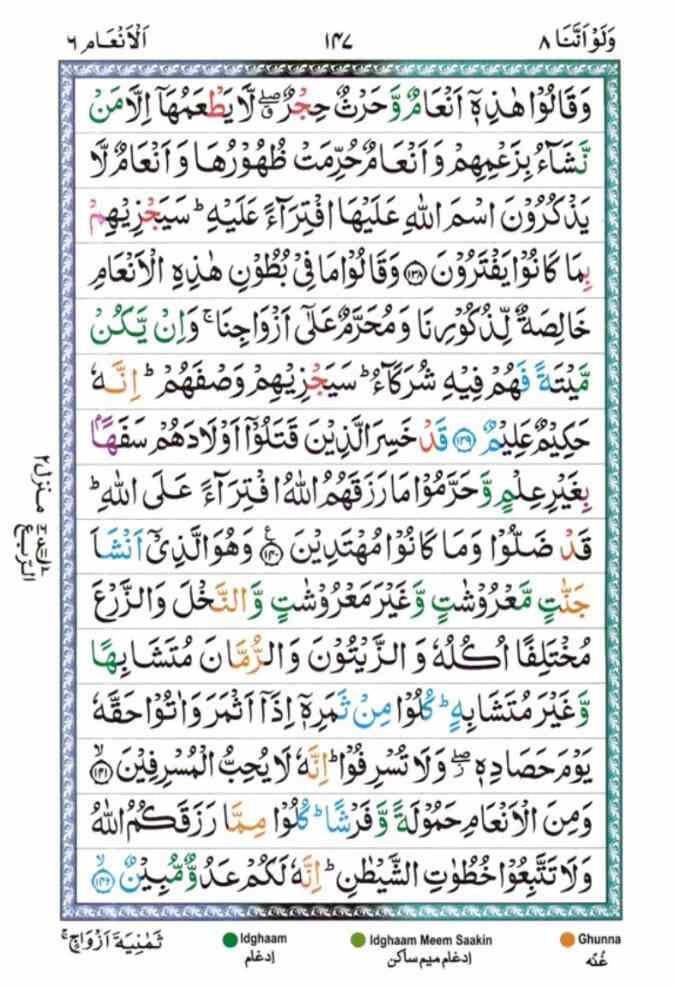 وَلَوْ اَنَّنَا ٨
١٤٧
اَلْاَنْعَام ٦
وَقَالُوْا هٰذِهٖٓ اَنْعَامٌ وَّحَرْثٌ حِجْرٌ ۖۗ لَّا يَطْعَمُهَآ اِلَّا مَنْ
نَّشَآءُ بِزَعْمِهِمْ وَاَنْعَامٌ حُرِّمَتْ ظُهُوْرُهَا وَاَنْعَامٌ لَّا
يَذْكُرُوْنَ اسْمَ اللّٰهِ عَلَيْهَا افْتِرَآءً عَلَيْهِ ؕ سَيَجْزِيْهِمْ
بِمَا كَانُوْا يَفْتَرُوْنَ ﴿١٣٨﴾ وَقَالُوْا مَا فِيْ بُطُوْنِ هٰذِهِ الْاَنْعَامِ
خَالِصَةٌ لِّذُكُوْرِنَا وَمُحَرَّمٌ عَلٰٓى اَزْوَاجِنَا ۚ وَاِنْ يَّكُنْ
مَّيْتَةً فَهُمْ فِيْهِ شُرَكَآءُ ؕ سَيَجْزِيْهِمْ وَصْفَهُمْ ؕ اِنَّهٗ
حَكِيْمٌ عَلِيْمٌ ﴿١٣٩﴾ قَدْ خَسِرَ الَّذِيْنَ قَتَلُوْٓا اَوْلَادَهُمْ سَفَهًاۢ
بِغَيْرِ عِلْمٍ وَّحَرَّمُوْا مَا رَزَقَهُمُ اللّٰهُ افْتِرَآءً عَلَى اللّٰهِ ؕ
قَدْ ضَلُّوْا وَمَا كَانُوْا مُهْتَدِيْنَ ﴿١٤٠﴾ ع وَهُوَ الَّذِيْٓ اَنْشَاَ
جَنّٰتٍ مَّعْرُوْشٰتٍ وَّغَيْرَ مَعْرُوْشٰتٍ وَّالنَّخْلَ وَالزَّرْعَ
مُخْتَلِفًا اُكُلُهٗ وَالزَّيْتُوْنَ وَالرُّمَّانَ مُتَشَابِهًا
وَّغَيْرَ مُتَشَابِهٍ ؕ كُلُوْا مِنْ ثَمَرِهٖٓ اِذَآ اَثْمَرَ وَاٰتُوْا حَقَّهٗ
يَوْمَ حَصَادِهٖ ۖ وَلَا تُسْرِفُوْا ؕ اِنَّهٗ لَا يُحِبُّ الْمُسْرِفِيْنَ ﴿١٤١﴾ ۙ
وَمِنَ الْاَنْعَامِ حَمُوْلَةً وَّفَرْشًا ؕ كُلُوْا مِمَّا رَزَقَكُمُ اللّٰهُ
وَلَا تَتَّبِعُوْا خُطُوٰتِ الشَّيْطٰنِ ؕ اِنَّهٗ لَكُمْ عَدُوٌّ مُّبِيْنٌ ﴿١٤٢﴾ ۙ
منزل٢
الرّبع
ثَمٰنِيَةَ اَزْوَاجٍ ۚ
Idghaam
ادغام
Idghaam Meem Saakin
ادغام میم ساکن
Ghunna
غُنّه